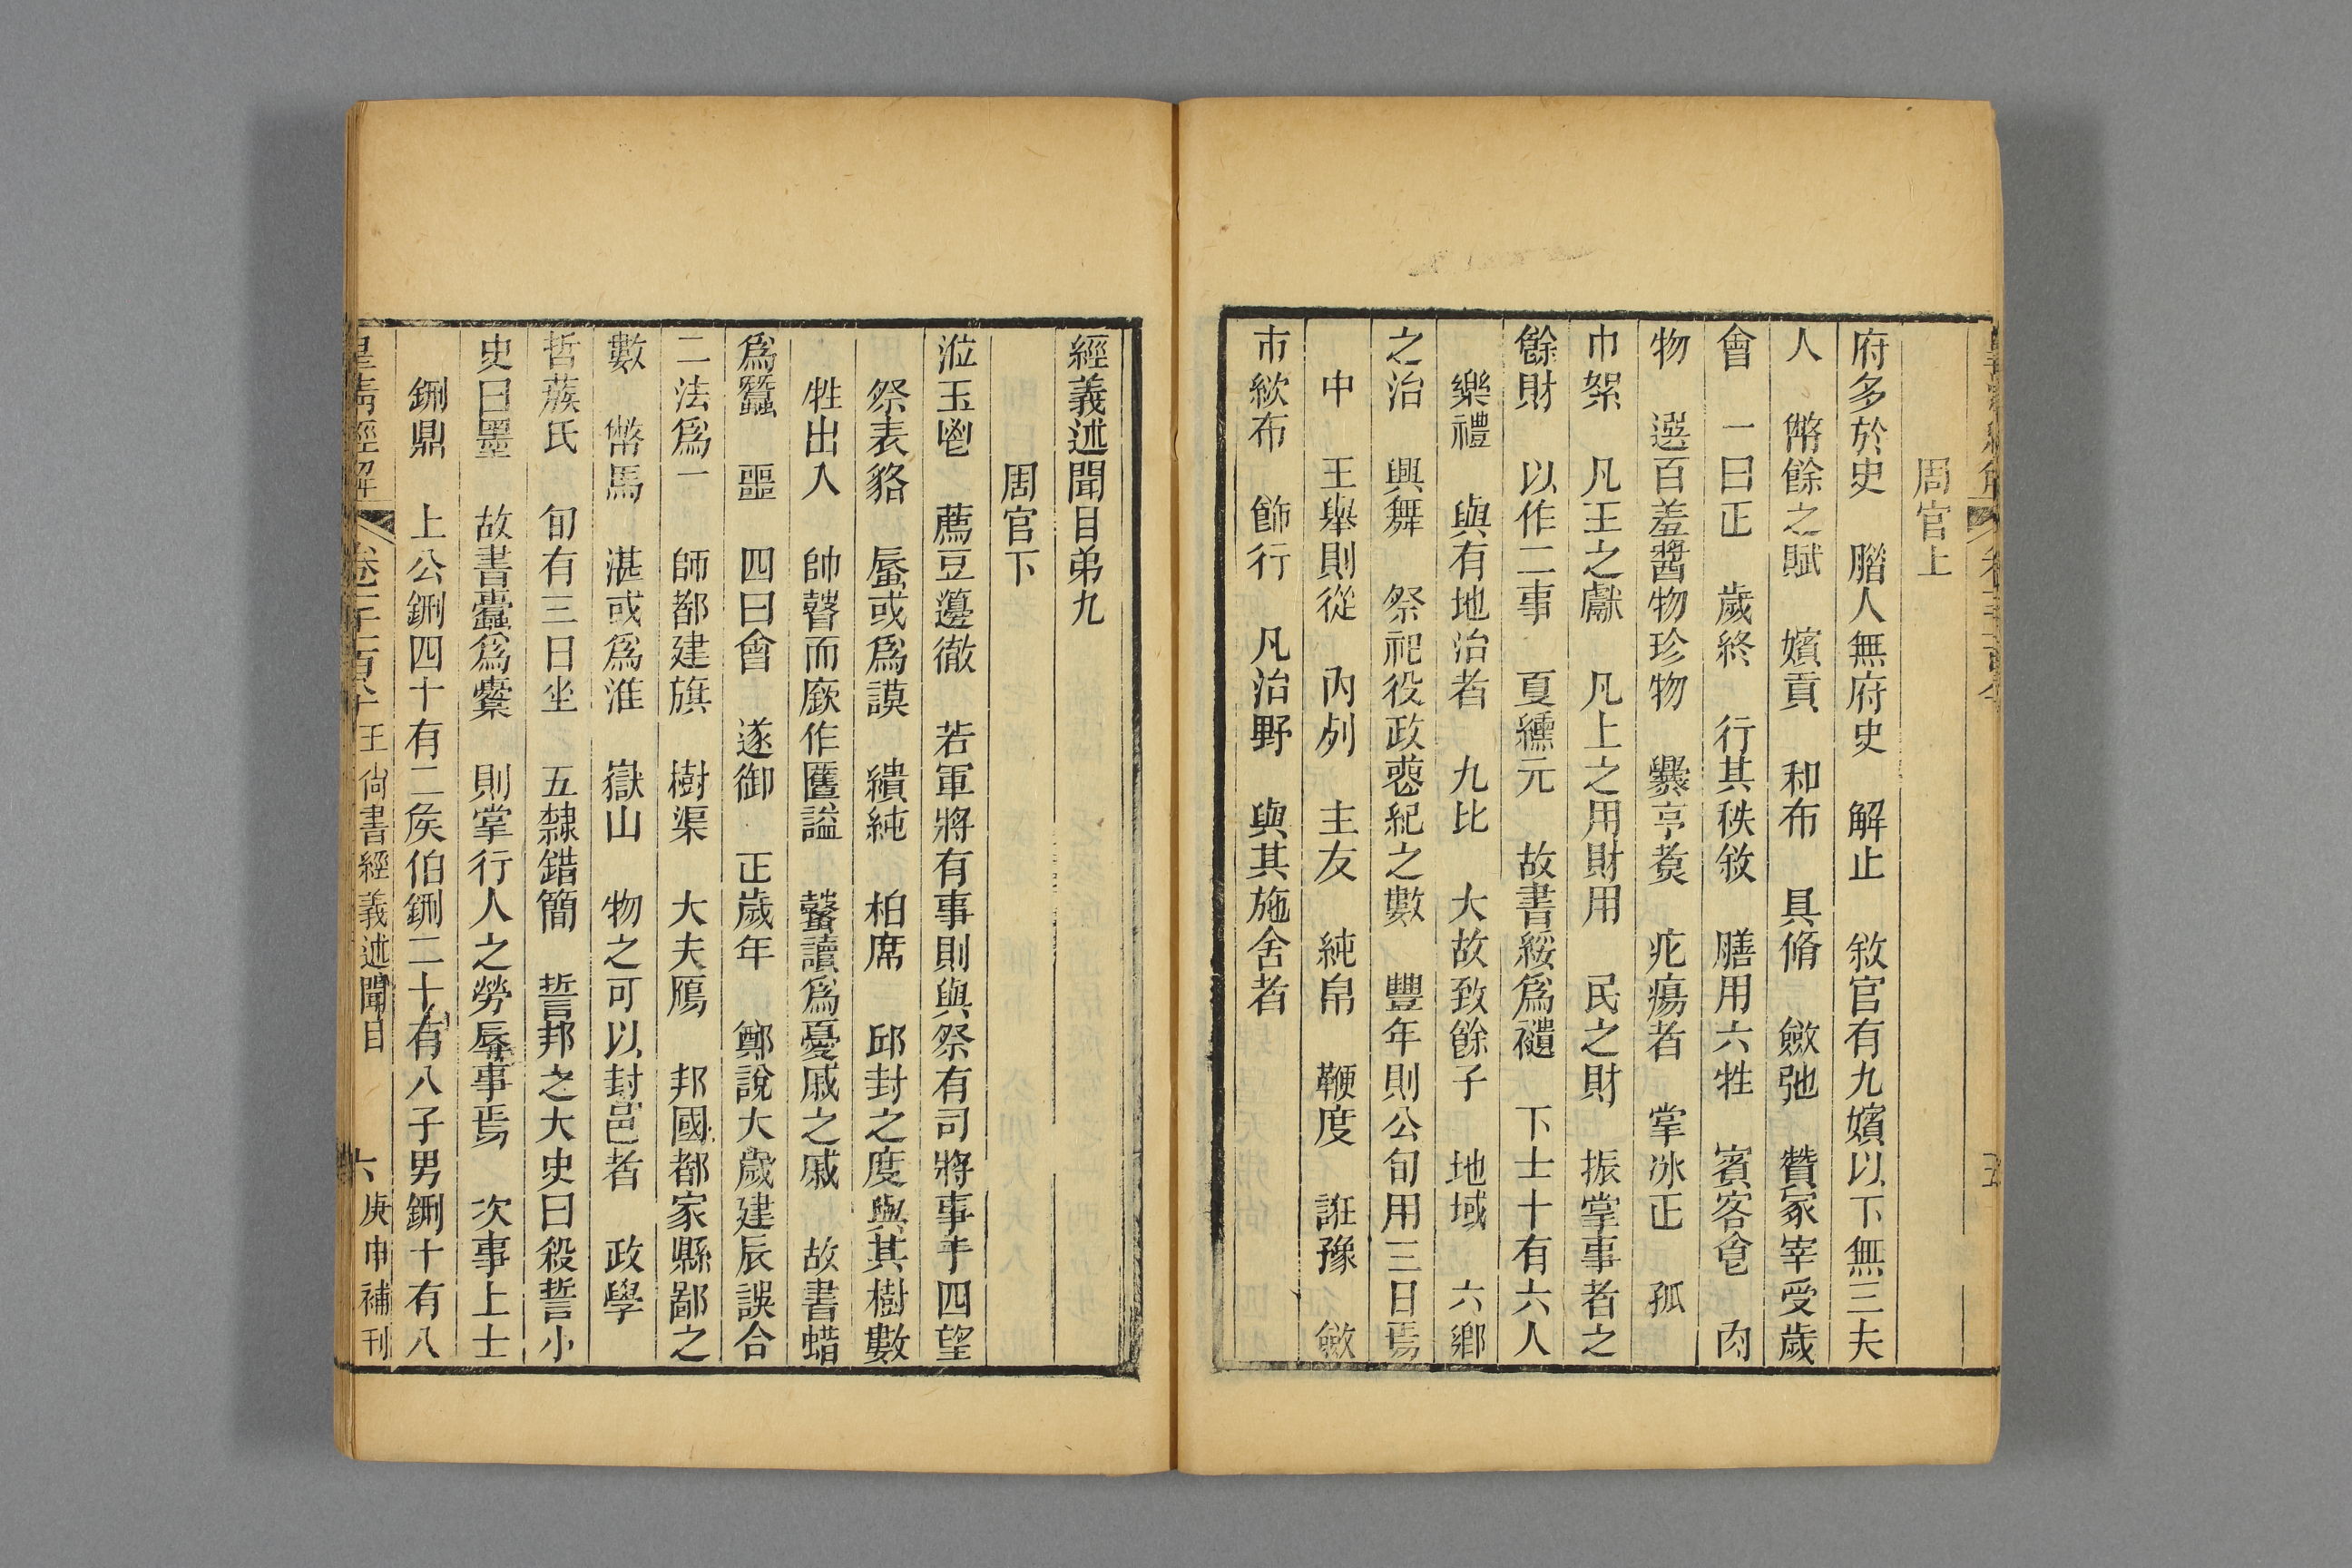 周官上
府多於史　腊人無府史　解止　敘官有九嬪以下無三夫
人　幣餘之賦　嬪貢　和布　具脩　斂弛　贊冢宰受歲
會　一曰正　歲終　行其秩敘　膳用六牲　賓客飧　肉
物　選百羞醬物珍物　爨亨煑　疕瘍者　掌冰正　孤
巾絮　凡王之獻　凡上之用財用　民之財　振掌事者之
餘財　以作二事　夏纁元　故書綏爲䙡　下士十有六人
樂禮　與有地治者　九比　大故致餘子　地域　六鄉
之治　興舞　祭祀役政喪紀之數　豐年則公旬用三日焉
中　王舉則從　內列　主友　純帛　鞭度　誑豫　斂
市絘布　飾行　凡治野　與其施舍者
經義述聞目弟九
周官下
涖玉鬯　薦豆籩徹　若軍將有事則與祭有司將事于四望
祭表貉　蜃或爲謨　繢純　柏席　邱封之度與其樹數
牲出入　帥瞽而廞作匶謚　鼜讀爲憂戚之戚　故書蜡
爲蠶　噩　四曰會　遂御　正歲年　鄭說大歲建辰誤合
二法爲一　師都建旗　樹渠　大夫鴈　邦國都家縣鄙之
數　幣馬　湛或爲淮　嶽山　物之可以封邑者　政學
硩蔟氏　旬有三日坐　五隸錯簡　誓邦之大史曰殺誓小
史曰墨　故書蠹爲櫜　則掌行人之勞辱事焉　次事上士
鉶鼎　上公鉶四十有二矦伯鉶二十有八子男鉶十有八
皇淸經解　卷一千一百八十　王尙書經義述聞目　六　庚申補刊